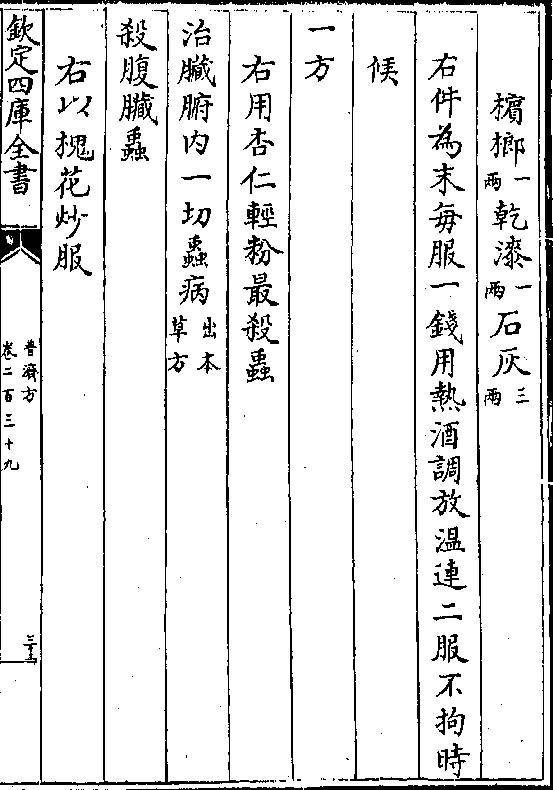 檳榔一兩乾漆一兩石灰三兩
右件為末每服一錢用熱酒調放溫連二服不拘時
候
一方
右用杏仁輕粉最殺蟲
治臟腑内一切蟲病出本草方
殺腹臟蟲
右以槐花炒服
欽定四庫全書
普濟方
卷二百三十九